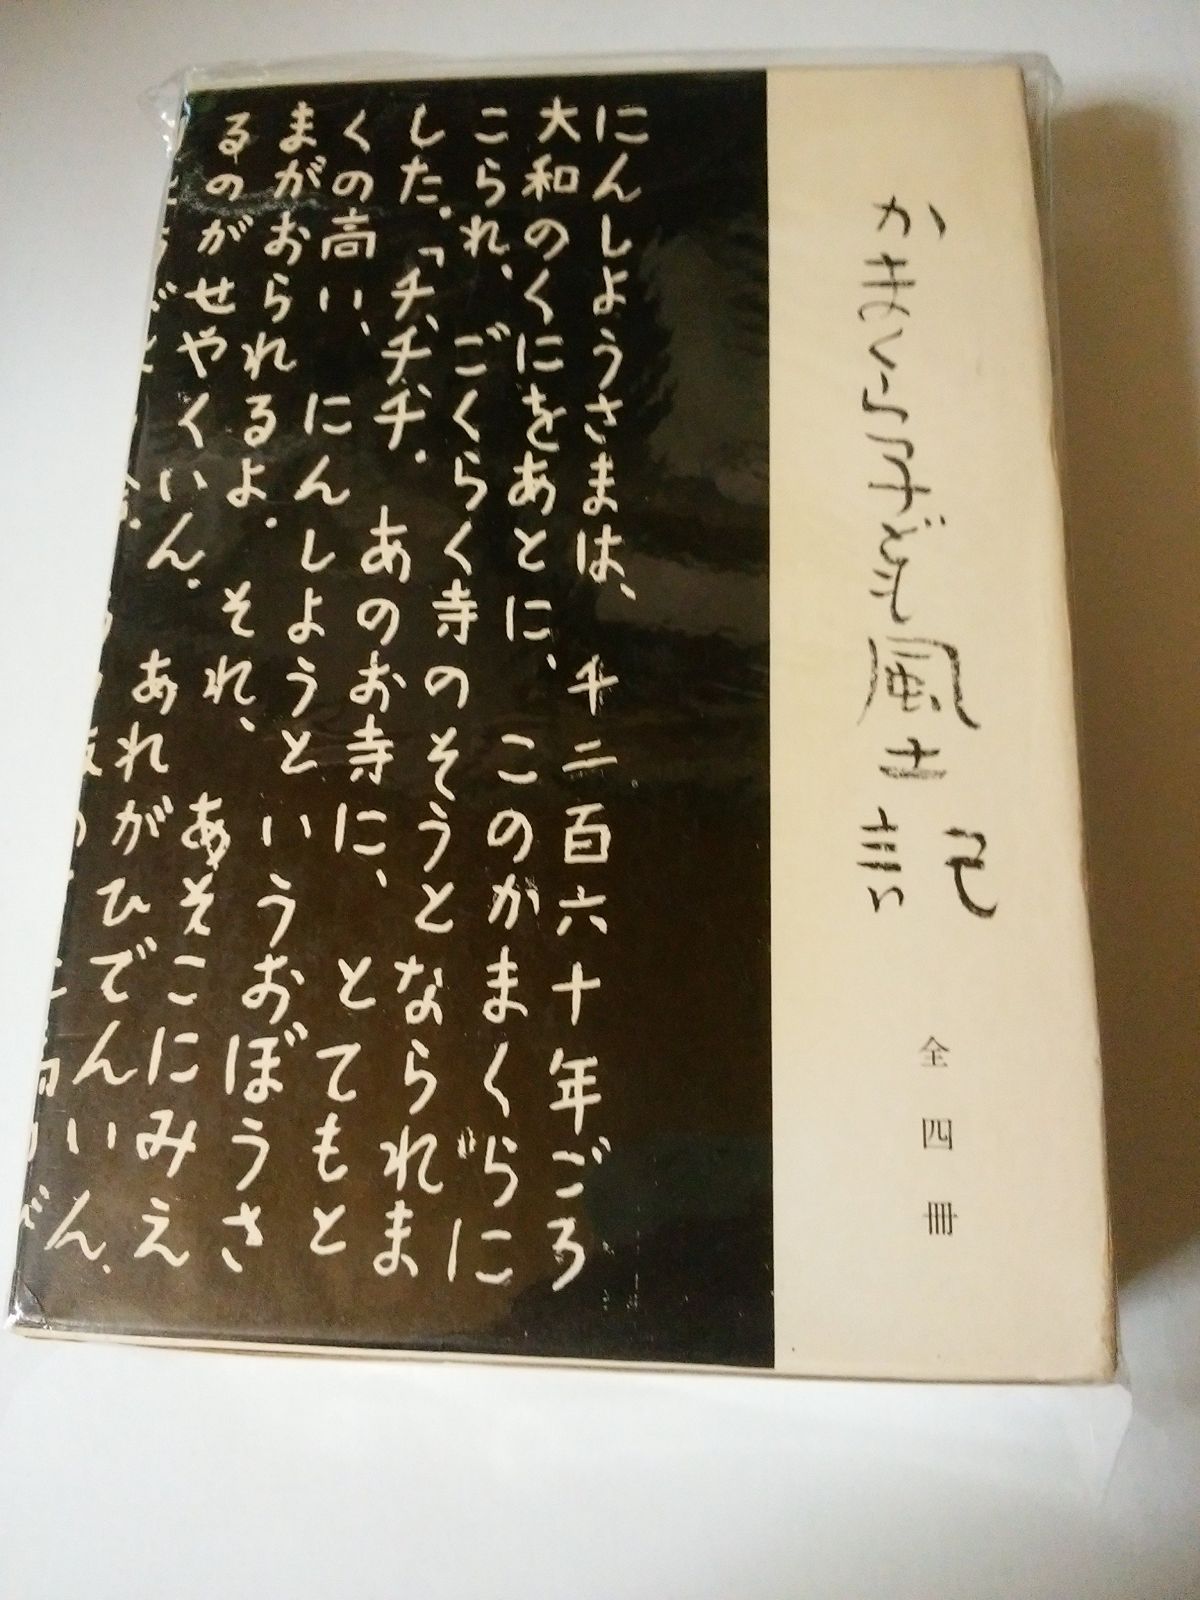 かまくら子ども風土記
全四冊
にんしようさまは、千二百六十年ごろ
大和のくにをあとに、このかまくらに
こられ、ごくらく寺のそうとなられま
した。「チ、チ、チ。あのお寺に、とてもと
くの高い、にんしようというおぼうさ
まがおられるよ。それ、あそこにみえ
るのがせやくいん。あれがひでんいん。